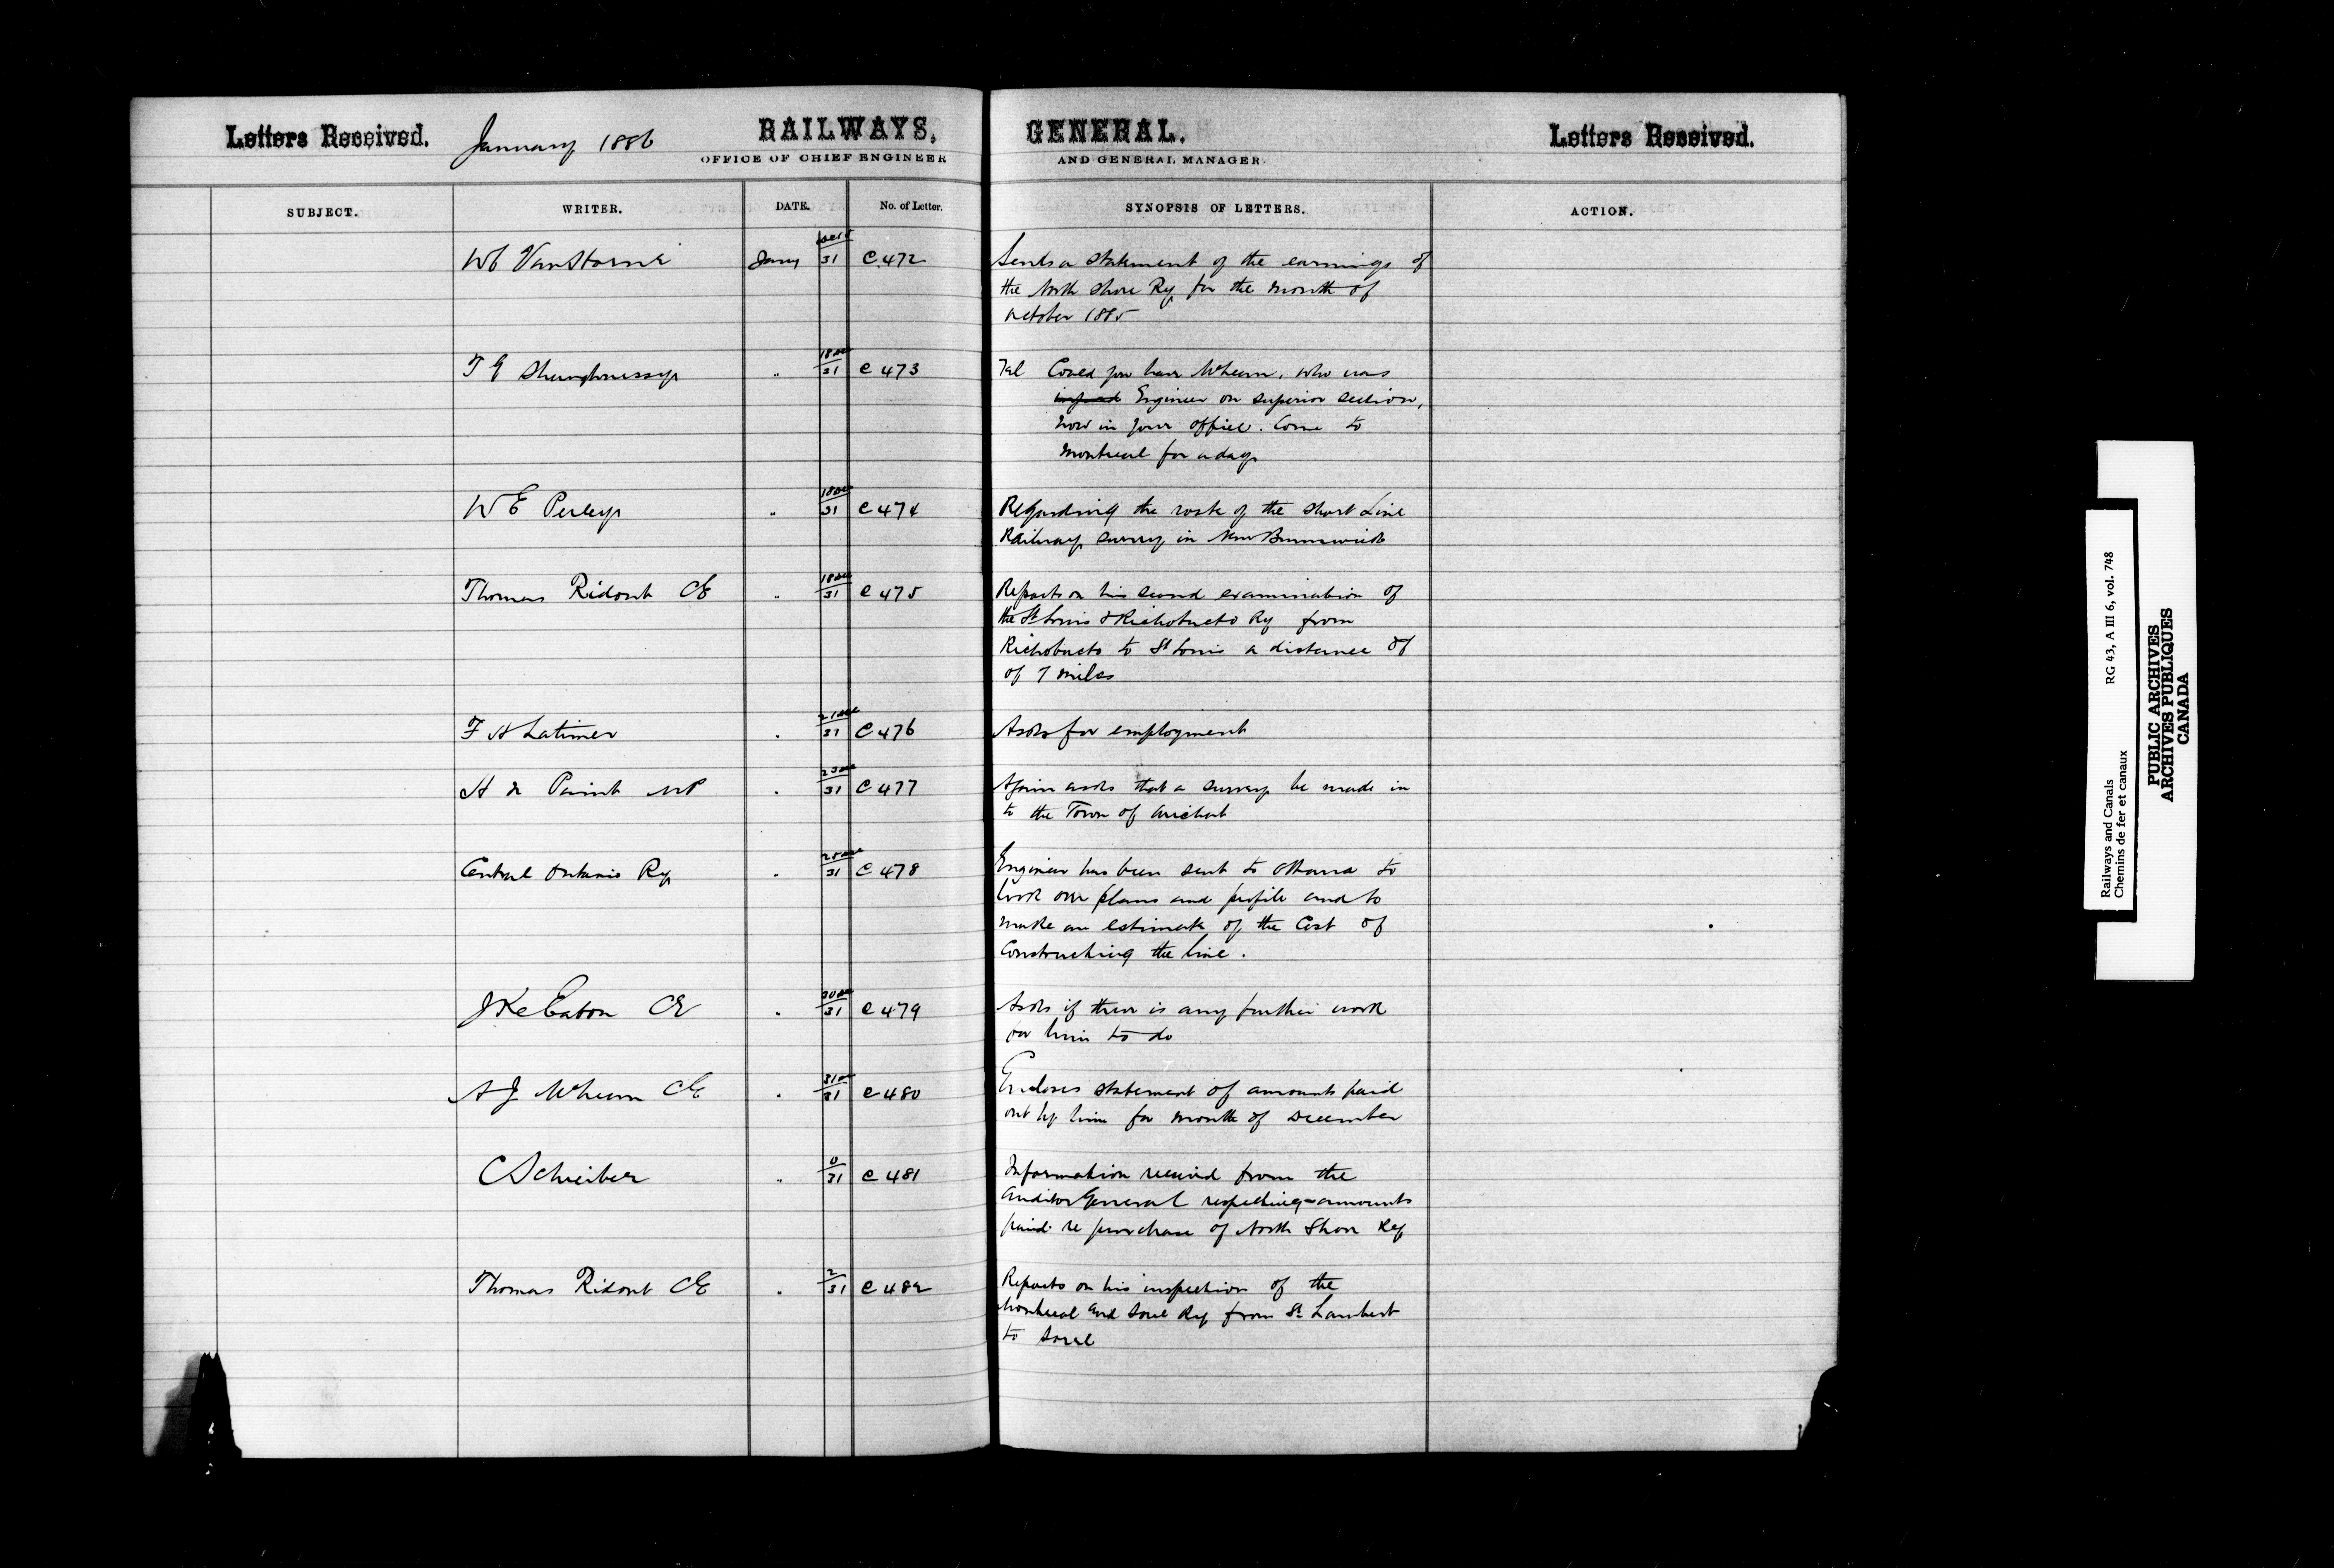 Letters Received. January 1886 RAILWAYS, GENERAL. Letters Received.
OFFICE OF CHIEF ENGINEER AND GENERAL MANAGER.
SUBJECT. WRITER. DATE. No. of Letter. SYNOPSIS OF LETTERS. ACTION.
WC VanHorne Jany 31 C 472 Sends a statement of the earnings of
the North Shore Ry for the month of
October 1885
T G Shaughnessy " 18 Dec 31 C 473 Tel Could you have McHeum, who was
Engineer on superior section,
now in your office. Come to
Montreal for a day
W E Perley " 18 Dec 31 C 474 Regarding the work of the Short Line
Railway survey in New Brunswick
Thomas Ridout CE " 18 Dec 31 C 475 Reports on his second examination of
the St Louis & Richobucto Ry from
Richobucto to St Louis a distance of
of 7 miles
F H Latimer " 21 Dec 31 C 476 Asks for employment
H N Paint MP " 23 Dec 31 C 477 Again asks that a survey be made in
to the Town of Arichat
Central Ontario Ry " 31 C 478 Engineer has been sent to Ottawa to
look over plans and profile and to
make an estimate of the Cost of
Constructing the line.
Eaton CE " 30 Dec 31 C 479 Asks if there is any further work
for him to do
A J McHeum CE " 31 Dec 31 C 480 Encloses statement of amounts paid
out by him for month of December
C Schreiber " 0 31 C 481 Information received from the
Auditor General respecting amounts
paid re purchase of North Shore Ry
Thomas Ridout CE " 2 31 C 482 Reports on his inspection of the
Montreal and Sorel Ry from St Lambert
to Sorel
Railways and Canals RG 43, A III 6, vol. 748
Chemins de fer et canaux
PUBLIC ARCHIVES
ARCHIVES PUBLIQUES
CANADA